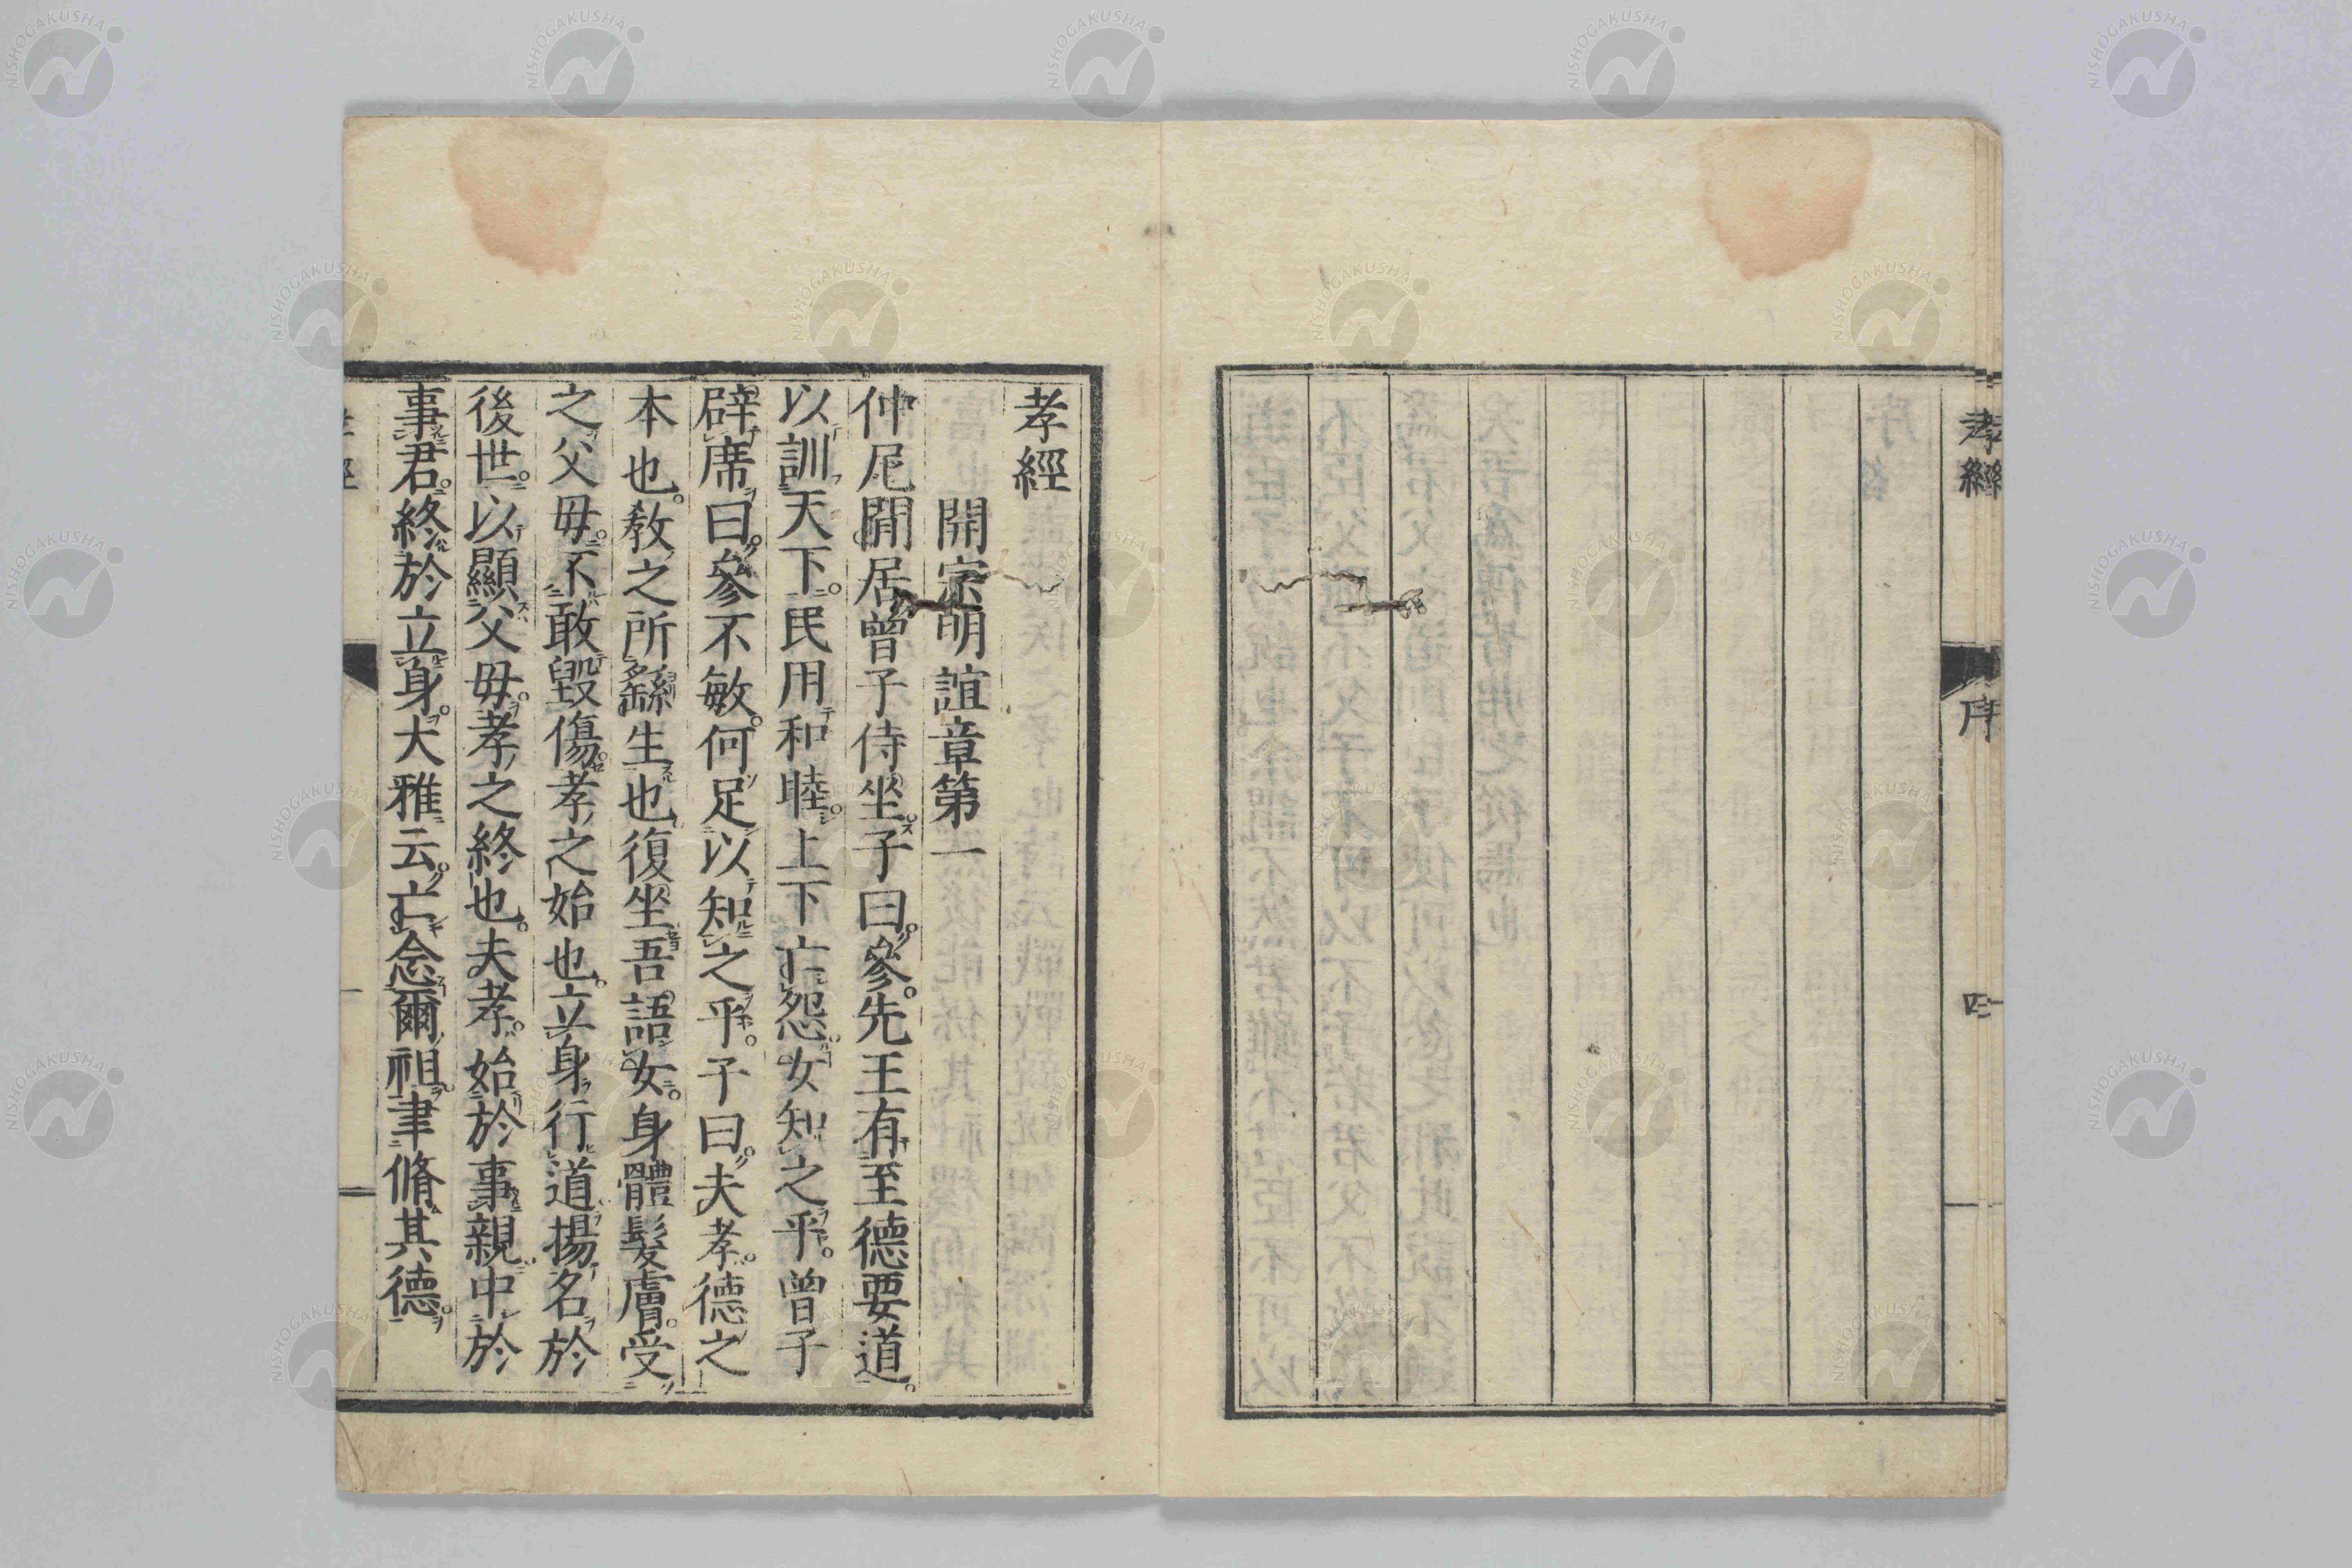 孝經
序
四
孝經
開宗明誼章第一
仲尼閒居曾子侍坐子曰參先王有至德要道
以訓天下民用和睦上下亡怨女知之乎曾子
辟席曰參不敏何足以知之乎子曰夫孝德之
本也教之所繇生也復坐吾語女身體髮膚受
之父毋不敢毀傷孝之始也立身行道揚名於
後世以顯父毋孝之終也夫孝始於事親中於
事君終於立身大雅云亡念爾祖聿脩其德
NISHOGAKUSHA